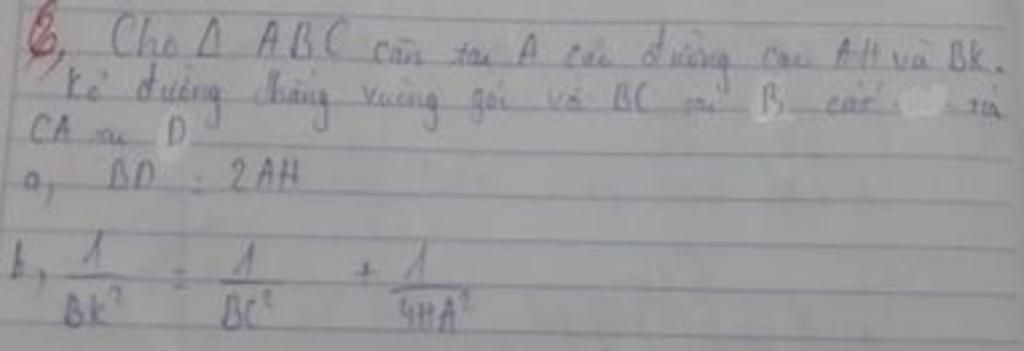 6, Cho Δ ABC cân tại A các đường cao AH và BK.
kẻ đường thẳng vuông góc với BC tại B cắt tia
CA tại D
a, BD = 2AH
b, 1/BK² = 1/BC² + 1/4HA²